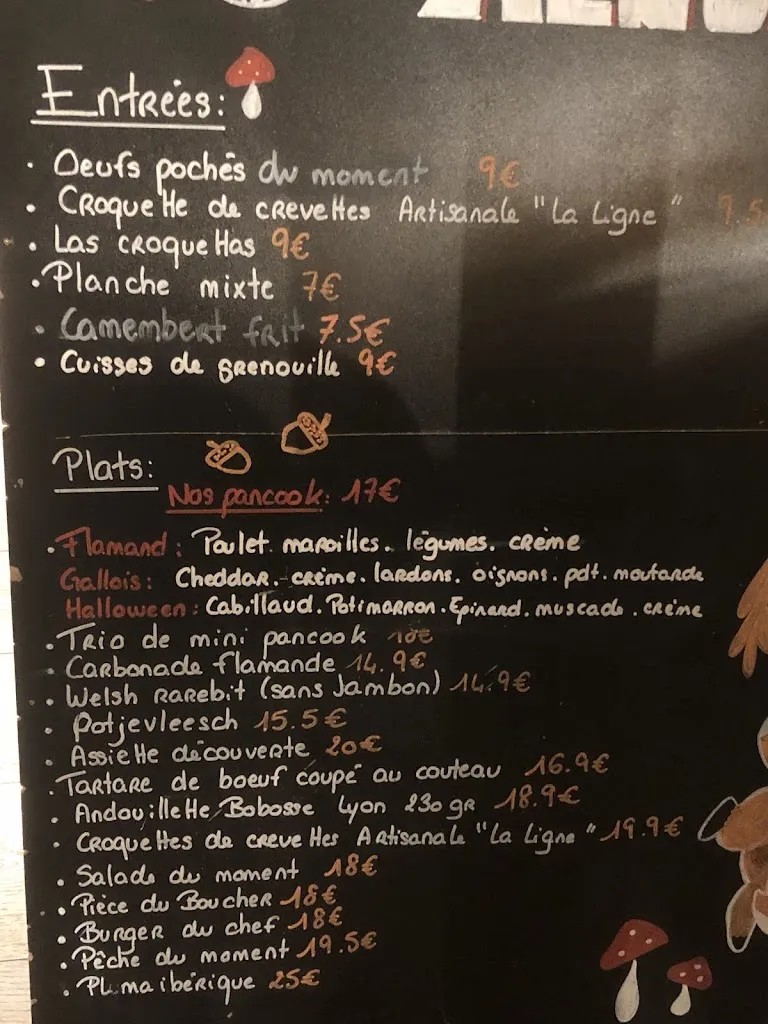 MENU
Entrées:
. Oeufs pochés du moment 9€
. Croquette de crevettes Artisanale "La Ligne" 9.5
. Las croquettas 9€
. Planche mixte 7€
. Camembert frit 7.5€
. Cuisses de grenouille 9€
Plats:
Nos pancook: 17€
. Flamand: Poulet. maroilles. légumes. crème
Gallois: Cheddar. crème. lardons. oignons. pdt. moutarde
Halloween: Cabillaud. Potimarron. Epinard. muscade. crème
. Trio de mini pancook 18€
. Carbonade flamande 14.9€
. Welsh rarebit (sans Jambon) 14.9€
. Potjevleesch 15.5€
. Assiette découverte 20€
. Tartare de boeuf coupé au couteau 16.9€
. Andouillette Bobosse Lyon 230gr 18.9€
. Croquettes de crevettes Artisanale "La Ligne" 19.9€
. Salade du moment 18€
. Pièce du Boucher 18€
. Burger du chef 18€
. Pêche du moment 19.5€
. Pluma ibérique 25€